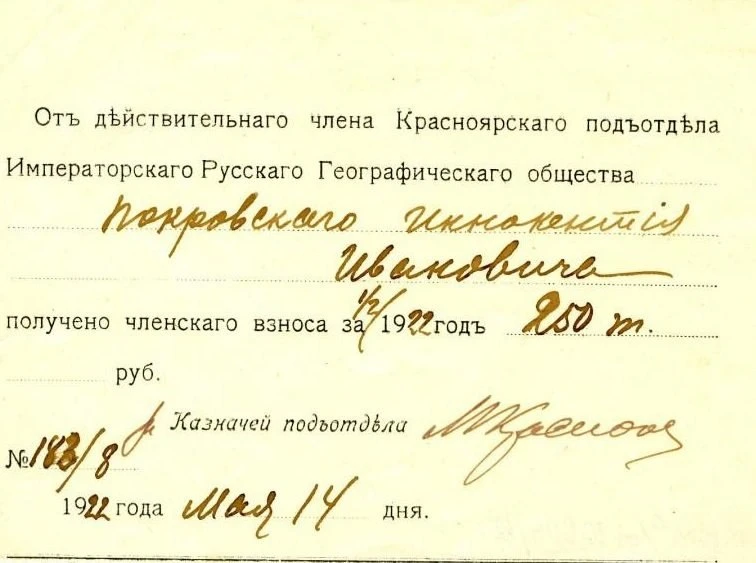 Отъ дѣйствительнаго члена Красноярскаго подъотдѣла
Императорскаго Русскаго Географическаго общества
Покровскаго Иннокентія
Ивановича
получено членскаго взноса за ½/ 1922 годъ 250 т.
руб.
Казначей подъотдѣла
№ 183/8
1922 года Мая 14 дня.